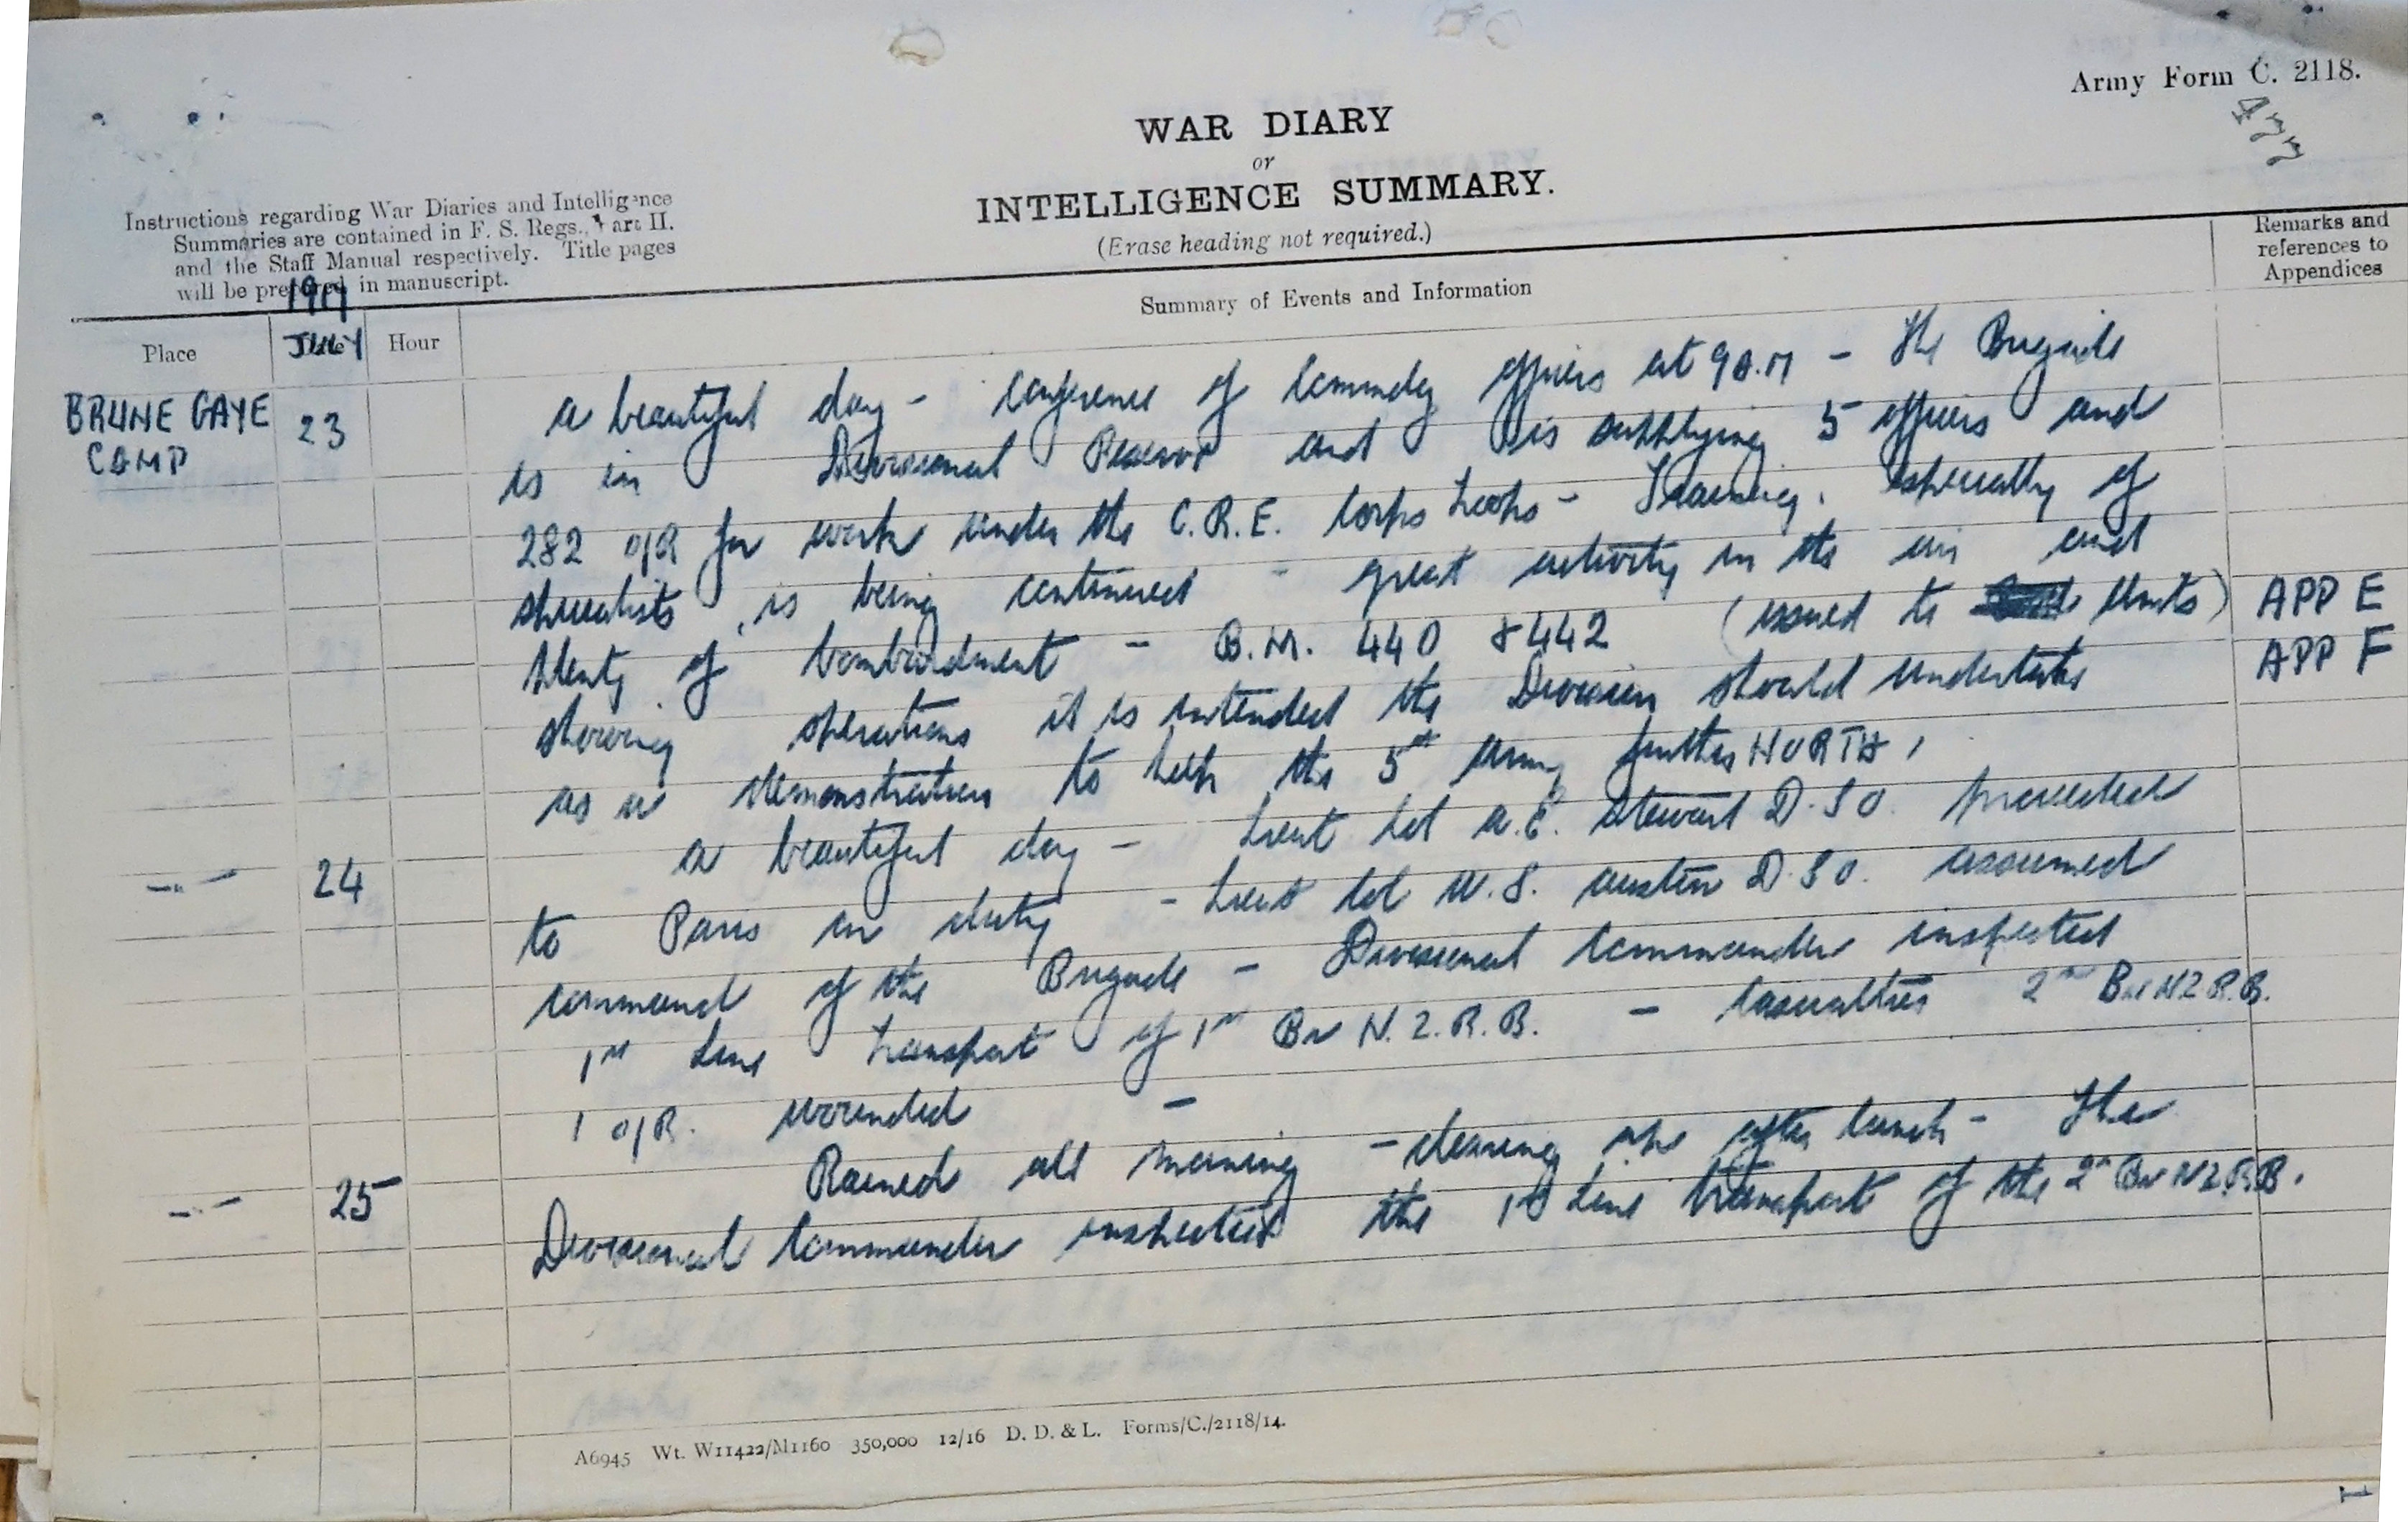 Army Form C. 2118.
477
WAR DIARY
or
INTELLIGENCE SUMMARY.
(Erase heading not required.)
Instructions regarding War Diaries and Intelligence
Summaries are contained in F. S. Regs., Part II.
and the Staff Manual respectively. Title pages
will be prepared in manuscript.
1917
Place JULY Hour Summary of Events and Information Remarks and
references to
Appendices
BRUNE GAYE 23 a beautiful day - conference of Commdg officers at 9 A.M - The Brigade
CAMP is in Divisional Reserve and is supplying 5 officers and
282 O/R for work under the C.R.E. Corps Troops - Training, especially of
specialists, is being continued - great activity in the air and
plenty of bombardment - B.M. 440 & 442 (issued to Units) APP E
showing operations it is intended the Division should undertake APP F
as a demonstration to help the 5th Army further NORTH,
-"- 24 a beautiful day - Lieut Col A.E. Stewart D.S.O. proceeded
to Paris on duty - Lieut Col W.S. Austin D.S.O. assumed
command of the Brigade - Divisional Commander inspected
1st Line Transport of 1st Bn N.Z.R.B. - Casualties 2nd Bn N Z R.B.
1 O/R. wounded -
-"- 25 Rained all morning - clearing up after lunch - The
Divisional Commander inspected the 1st Line transport of the 2n Bn N Z.R.B.
A6945 Wt. W11422/M1160 350,000 12/16 D. D. & L. Forms/C./2118/14.